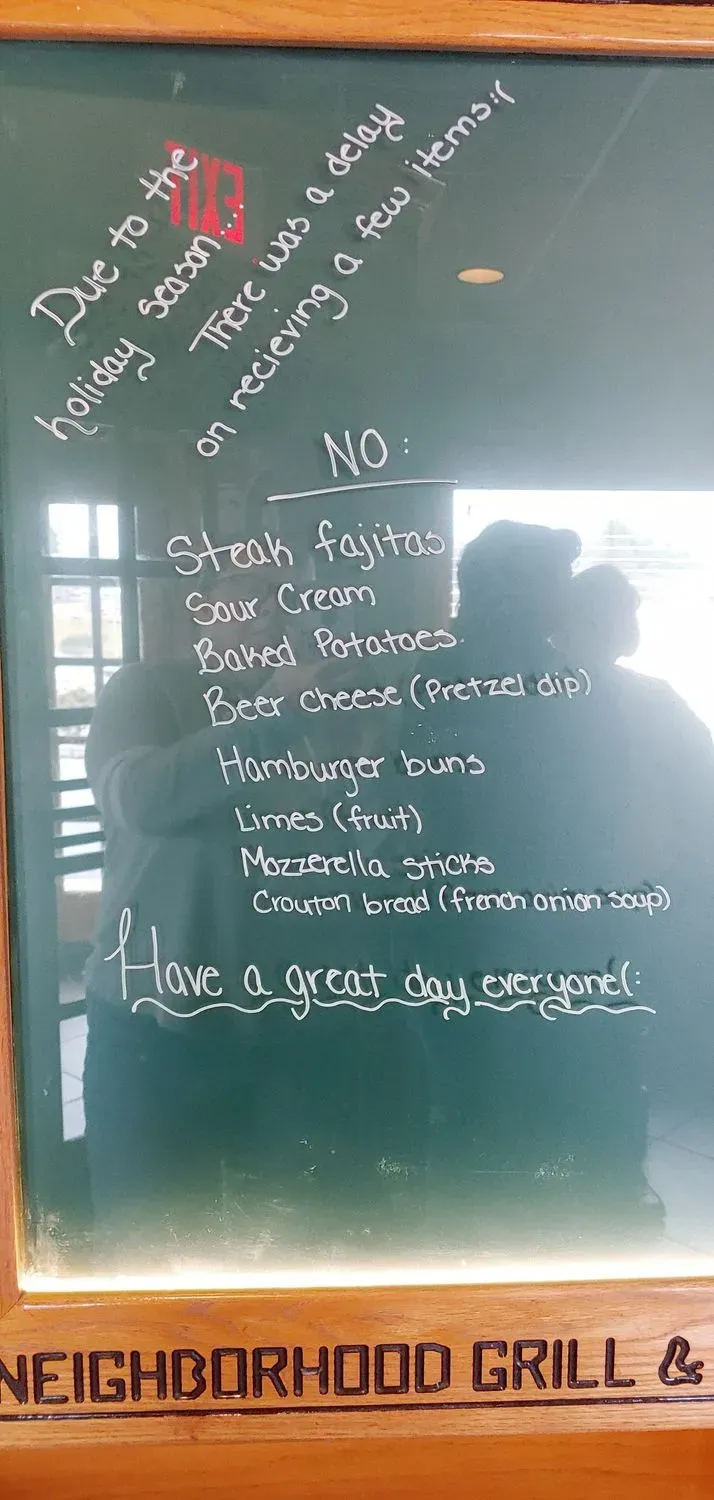 Due to the
holiday season...
There was a delay
on recieving a few items:(
EXIT
NO:
Steak fajitas
Sour Cream
Baked Potatoes
Beer cheese (Pretzel dip)
Hamburger buns
Limes (fruit)
Mozzerella sticks
Crouton bread (french onion soup)
Have a great day everyone(:
NEIGHBORHOOD GRILL &